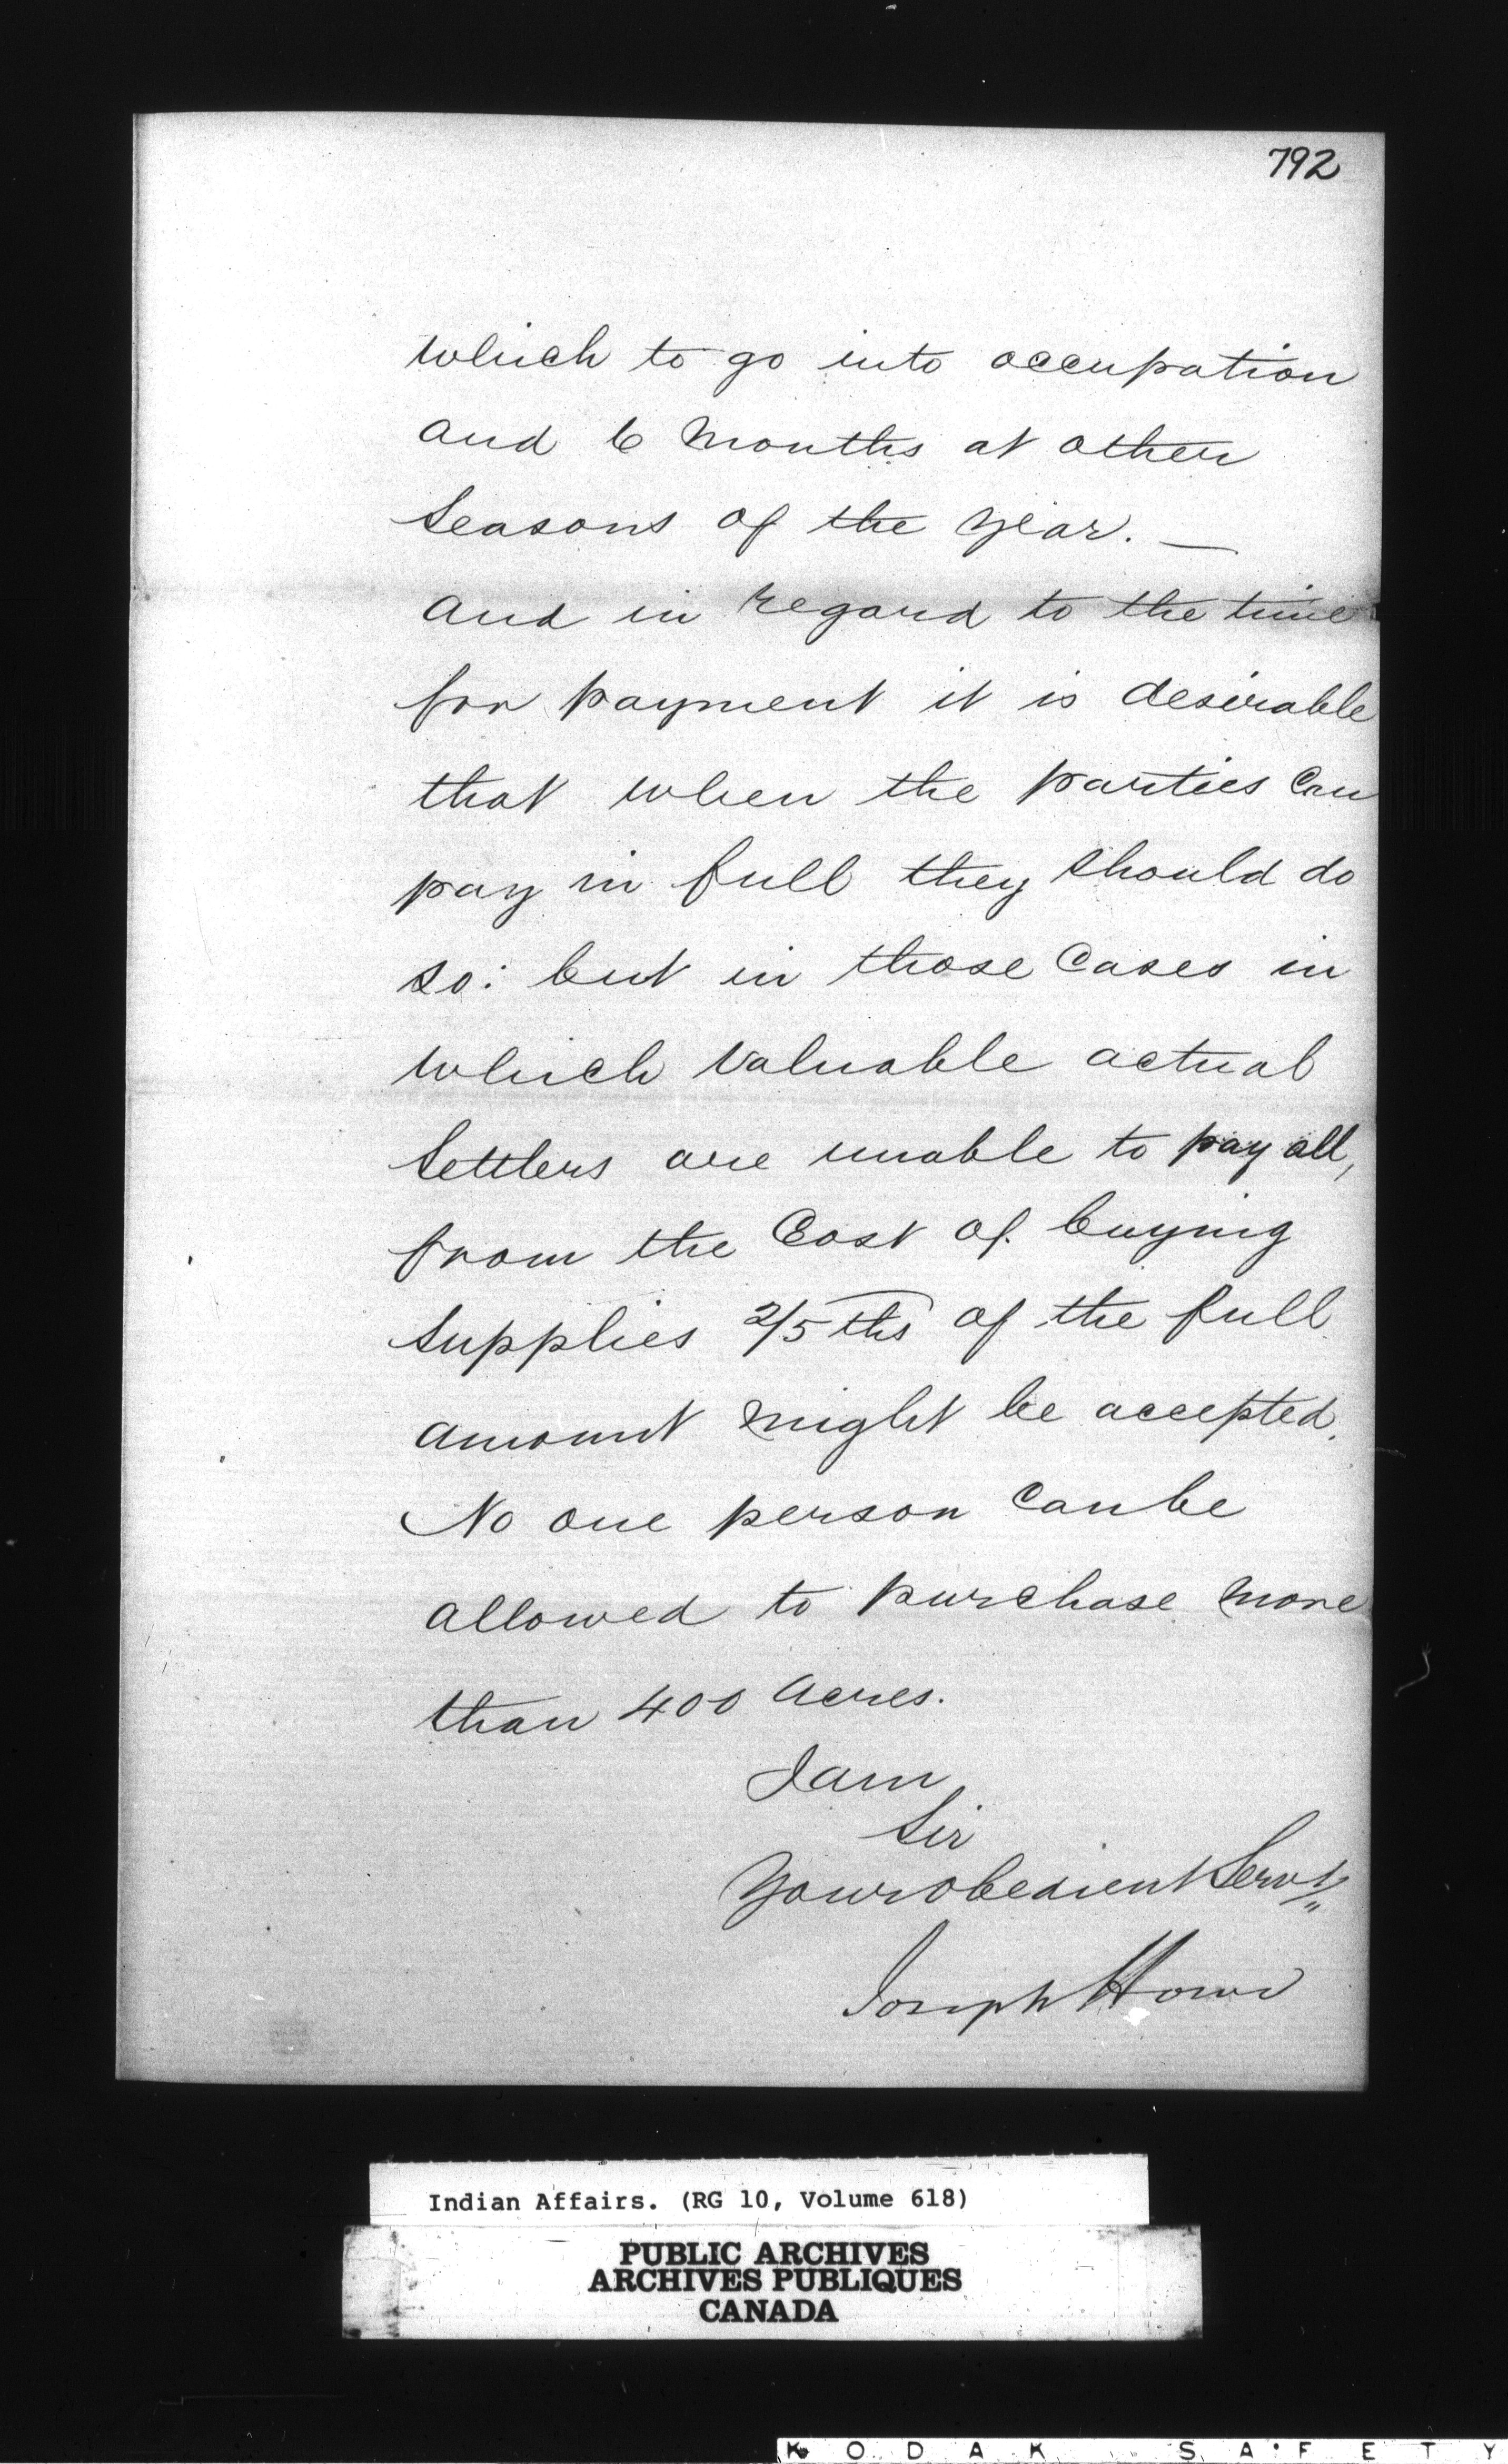 792
which to go into occupation
and 6 months at other
Seasons of the year. —
and in regard to the time
for payment it is desirable
that when the parties can
pay in full they should do
so: but in those Cases in
which valuable actual
Settlers are unable to pay all,
from the Cost of buying
Supplies 2/5ths of the full
amount might be accepted.
No one person can be
allowed to purchase more
than 400 acres.
I am
Sir
Your obedient Servt
Joseph Howe
Indian Affairs. (RG 10, Volume 618)
PUBLIC ARCHIVES
ARCHIVES PUBLIQUES
CANADA
KODAK SAFETY